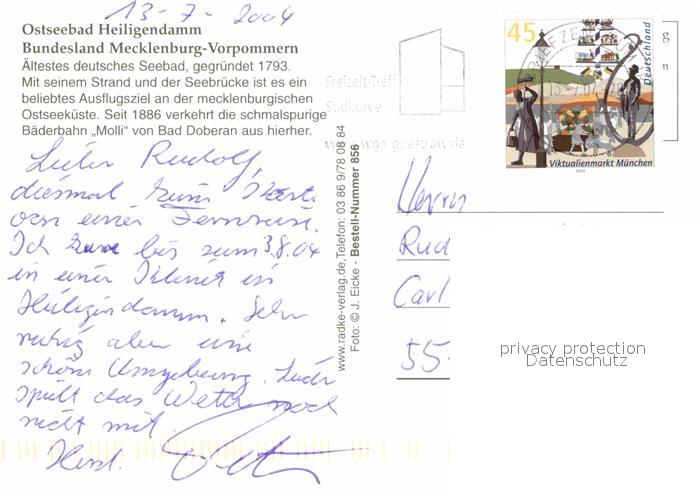 13-7-2004
Ostseebad Heiligendamm
Bundesland Mecklenburg-Vorpommern
Ältestes deutsches Seebad, gegründet 1793.
Mit seinem Strand und der Seebrücke ist es ein
beliebtes Ausflugsziel an der mecklenburgischen
Ostseeküste. Seit 1886 verkehrt die schmalspurige
Bäderbahn „Molli" von Bad Doberan aus hierher.
Lieber Rudolf,
diesmal
von einer Fernreise.
Ich bis zum 3.8.04
in einer Klinik in
Heiligendamm. Sehr
ruhig aber eine
schöne Umgebung. Leider
spielt das Wetter noch
nicht mit.
Herzl.
www.radke-verlag.de, Telefon: 03 86 9/78 08 84
Foto: © J. Eicke - Bestell-Nummer 856
Freizeit-Treff
Südkurve
guestrow.de
45
Deutschland
Viktualienmarkt München
2003
BRIEFZENTRUM
g
n
Herrn
Rud
Carl
55
privacy protection
Datenschutz